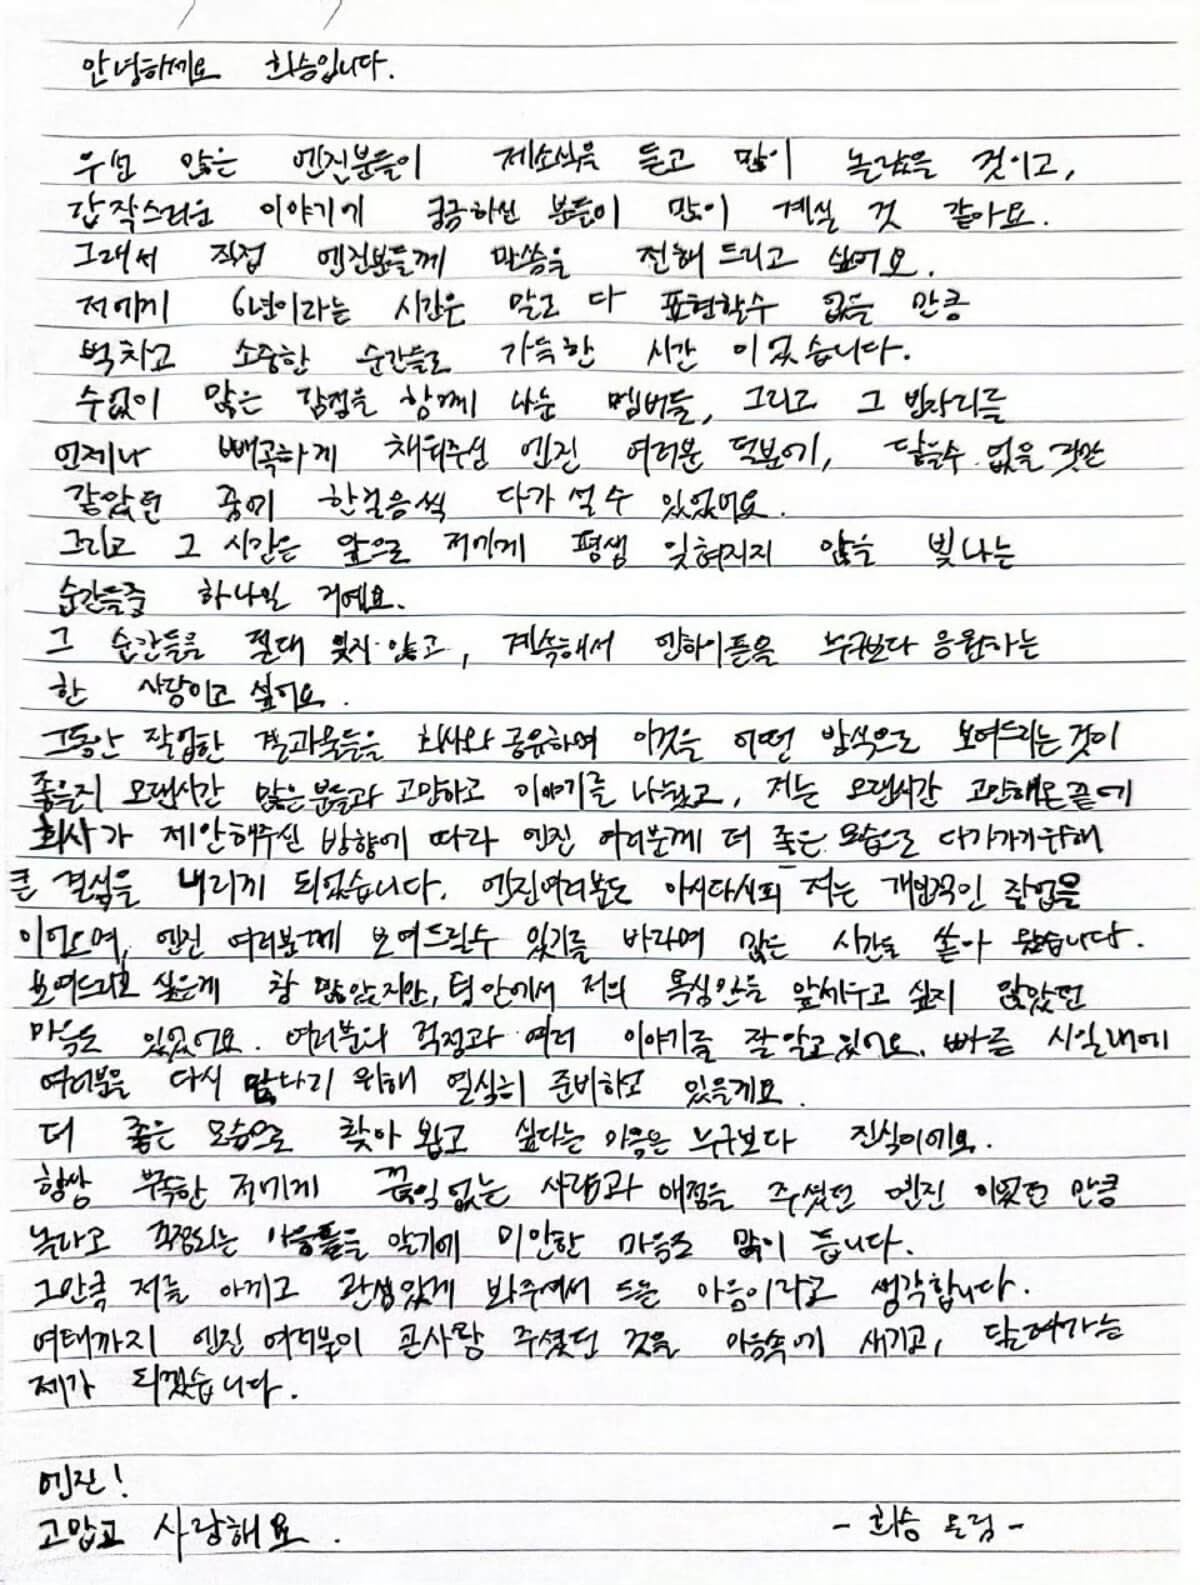 안녕하세요 희승입니다.
우선 많은 엔진분들이 제소식을 듣고 많이 놀랐을 것이고,
갑작스러운 이야기에 궁금하신 분들이 많이 계실 것 같아요.
그래서 직접 엔진분들께 말씀을 전해 드리고 싶어요.
저에게 6년이라는 시간은 말로 다 표현할수 없을 만큼
벅차고 소중한 순간들로 가득한 시간 이었습니다.
수없이 많은 감정을 함께 나눈 멤버들, 그리고 그 빈자리를
언제나 빼곡하게 채워주신 엔진 여러분 덕분에, 닿을수 없을 것만
같았던 꿈에 한걸음씩 다가 설 수 있었어요.
그리고 그 시간은 앞으로 저에게 평생 잊혀지지 않을 빛나는
순간들중 하나일 거예요.
그 순간들을 절대 잊지 않고, 계속해서 엔하이픈을 누구보다 응원하는
한 사람이고 싶어요.
그동안 작업한 결과물들을 회사와 공유하며 이것을 어떤 방식으로 보여드리는것이
좋을지 오랜시간 많은분들과 고민하고 이야기를 나눴고, 저는 오랜시간 고민해온끝에
회사가 제안해주신 방향에 따라 엔진 여러분께 더 좋은 모습으로 다가가기위해
큰 결심을 내리게 되었습니다. 엔진여러분도 아시다시피 저는 개인적인 작업을
이어오며, 엔진 여러분께 보여드릴수 있기를 바라며 많은 시간을 쏟아 왔습니다.
보여드리고 싶은게 참 많았지만, 팀 안에서 저의 욕심만을 앞세우고 싶지 않았던
마음도 있었어요. 여러분의 걱정과 여러 이야기를 잘 알고있어요. 빠른 시일내에
여러분을 다시 만나기 위해 열심히 준비하고 있을게요.
더 좋은 모습으로 찾아 뵙고 싶다는 마음은 누구보다 진심이에요.
항상 부족한 저에게 끊임없는 사랑과 애정을 주셨던 엔진 이었던 만큼
놀라고 걱정되는 마음들을 알기에 미안한 마음도 많이 듭니다.
그만큼 저를 아끼고 관심있게 봐주셔서 드는 마음이라고 생각합니다.
여태까지 엔진 여러분이 큰사랑 주셨던 것을 마음속에 새기고, 달려가는
제가 되겠습니다.
엔진!
고맙고 사랑해요.
- 희승 드림 -